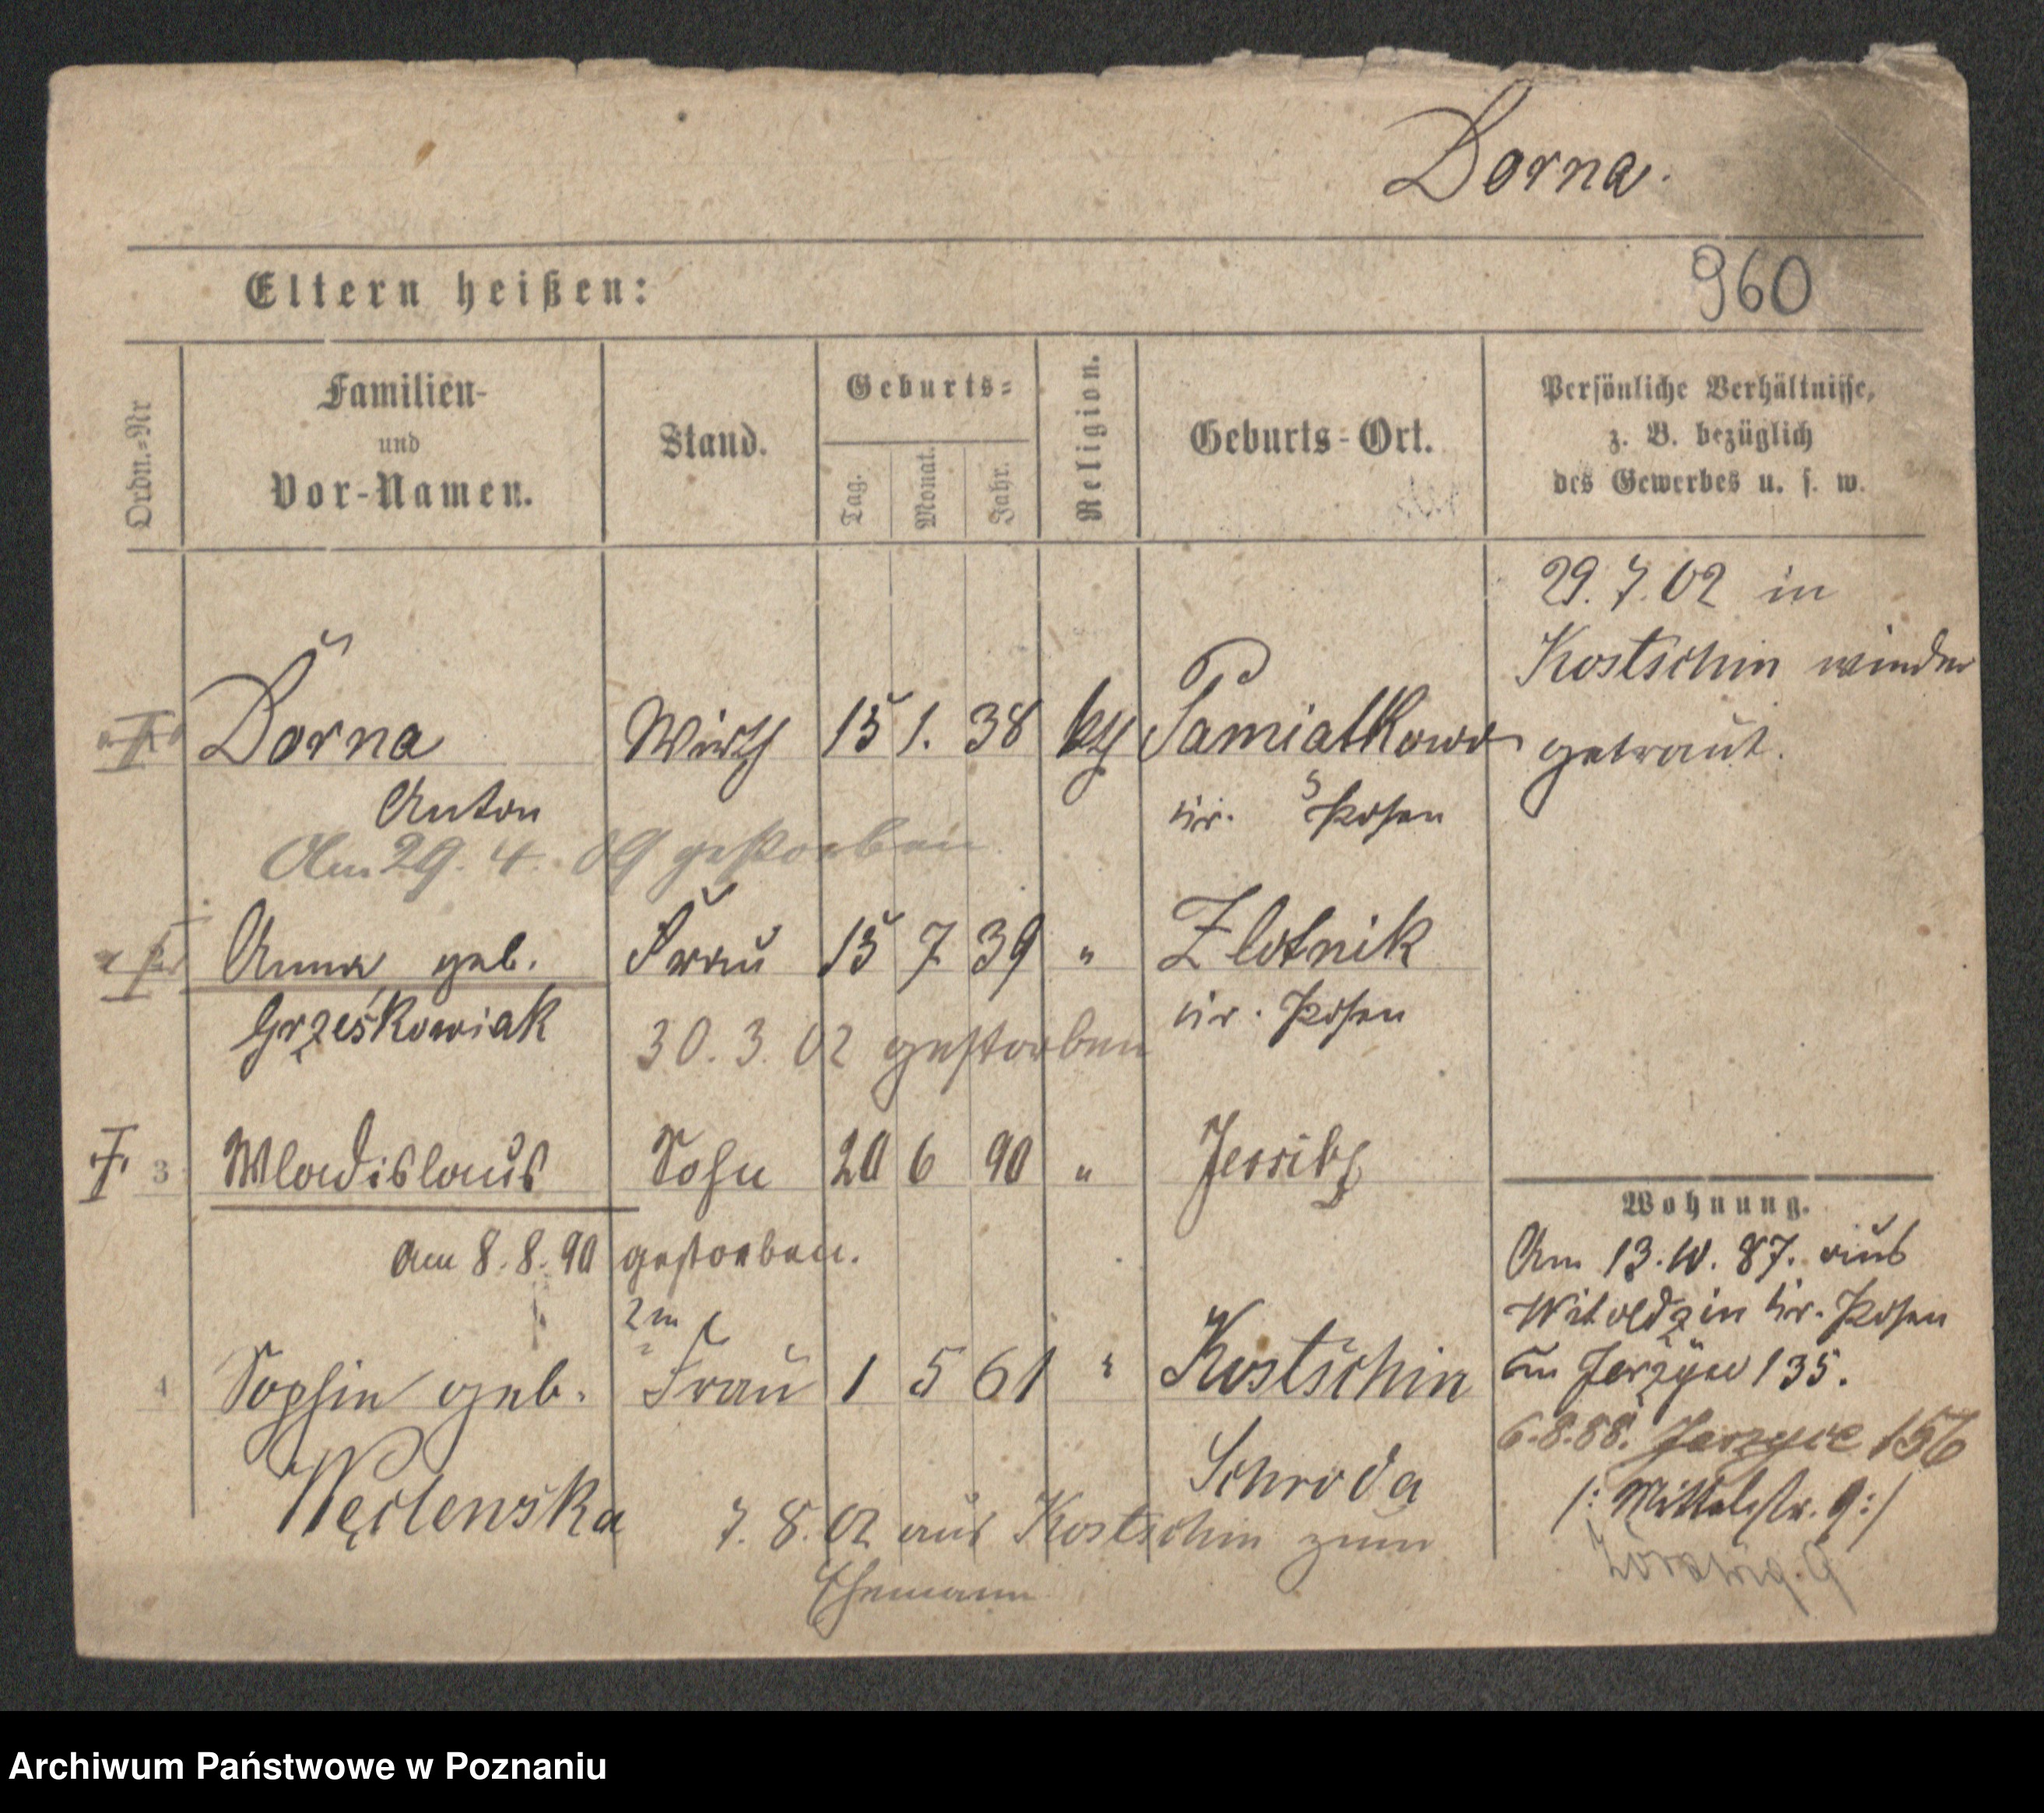 Dorna.
Eltern heißen:
960
Ordn.=Nr
Familien-
und
Vor-Namen.
Stand.
Geburts=
Tag.
Monat.
Jahr.
Religion.
Geburts-Ort.
Persönliche Verhältnisse,
z. B. bezüglich
des Gewerbes u. s. w.
29.7.02 in
Kostschin wieder
getraut.
Dorna Wirth 15 1. 38 kth Pamiatkowo
Anton Kr. Posen
Am 29. 4. 09 gestorben
Anna geb. Frau 15 7 39 " Zlotnik
Grześkowiak Kr. Posen
30. 3. 02 gestorben
3 Wladislaus Sohn 20 6 90 " Jersitz
am 8.8.90 gestorben.
2te
4 Sophie geb. Frau 1 5 61 " Kostschin
Węclewska Schroda
7.8.02 aus Kostschin zum
Ehemann
Wohnung.
Am 13.10.87. aus
Witoldzin Kr. Posen
in Jerzyce 135.
6.8.88. Jerzyce 156
/: Mittelstr. 9:/
Archiwum Państwowe w Poznaniu